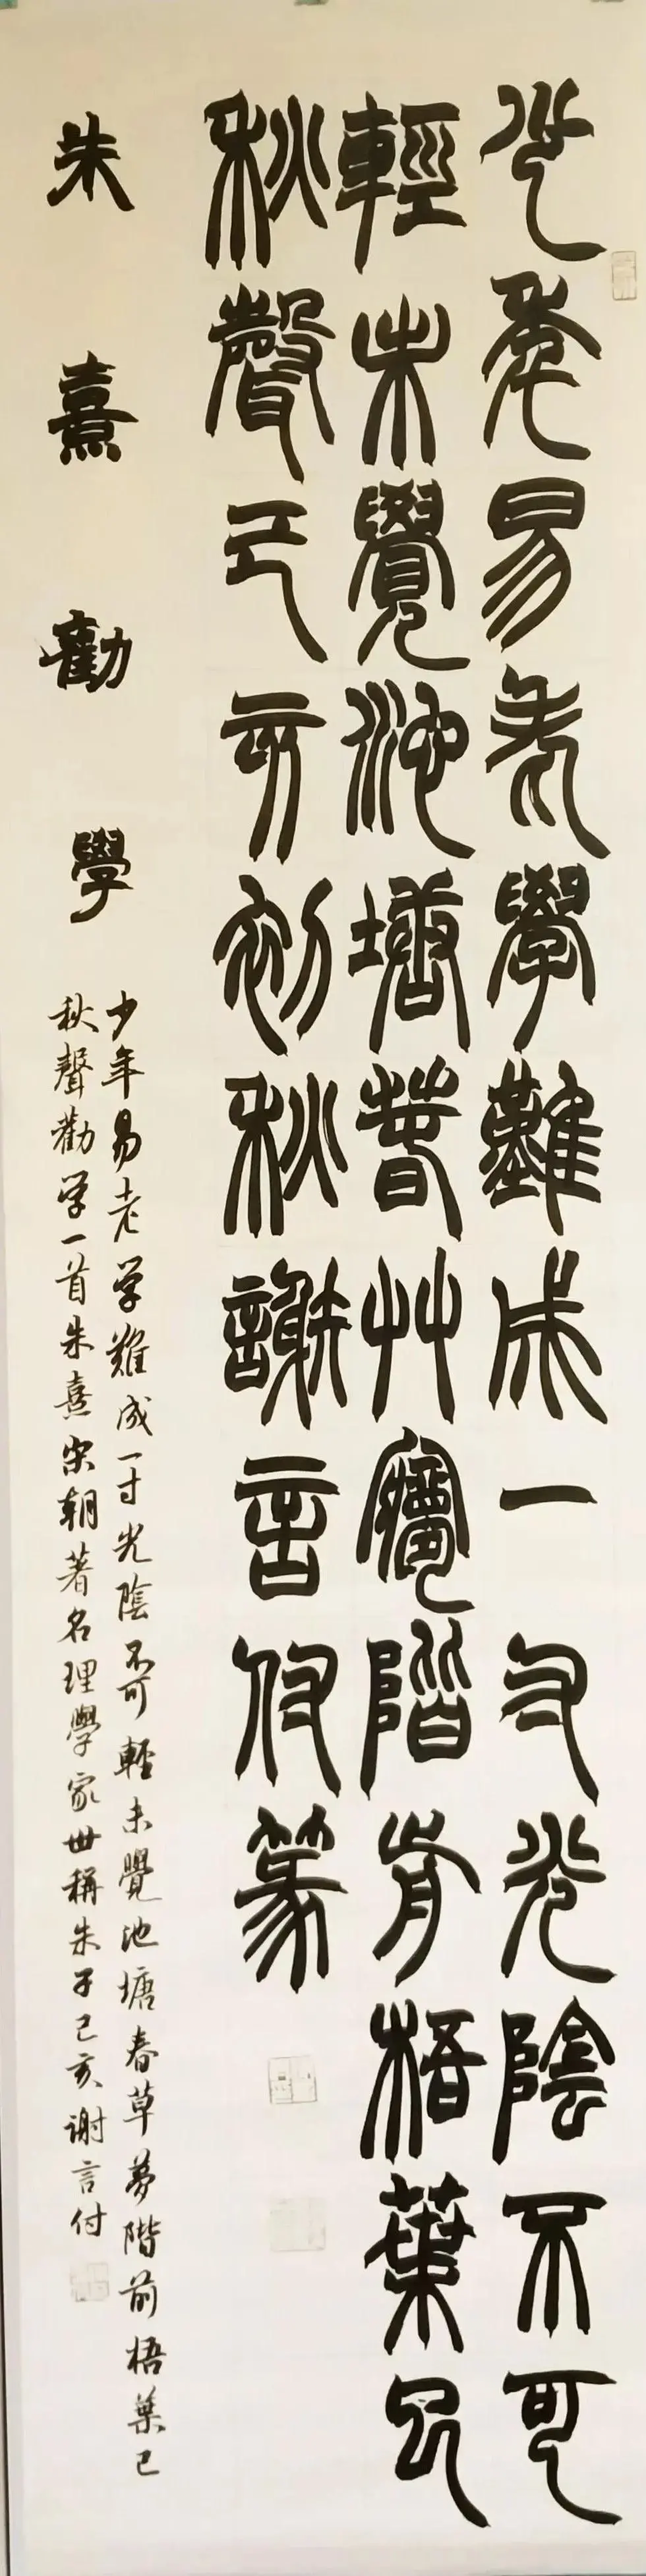 少年易老學難成一寸光陰不可
輕未覺池塘春草夢階前梧葉已
秋聲己亥初秋謝言付篆
朱熹勸學
少年易老学難成一寸光陰不可輕未覺池塘春草夢階前梧葉已
秋聲勸学一首朱熹宋朝著名理學家世稱朱子己亥谢言付